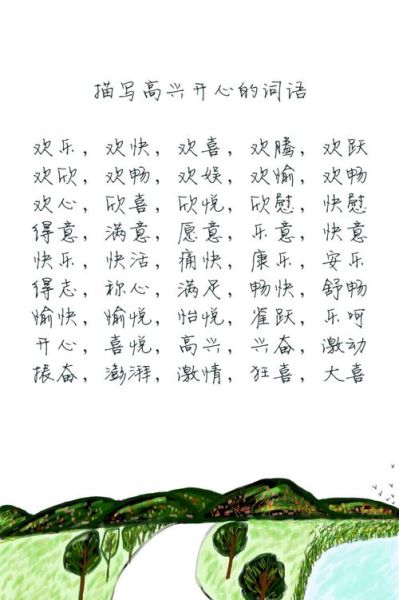 描写高兴开心的词语
欢乐，欢快，欢喜，欢腾，欢跃
欢欣，欢畅，欢娱，欢愉，欢畅
欢心，欣喜，欣悦，欣慰，快慰
得意，满意，愿意，乐意，快意
快乐，快活，痛快，康乐，安乐
得志，称心，满足，畅快，舒畅
愉快，愉悦，怡悦，雀跃，乐呵
开心，喜悦，高兴，兴奋，激动
振奋，澎湃，激情，狂喜，大喜